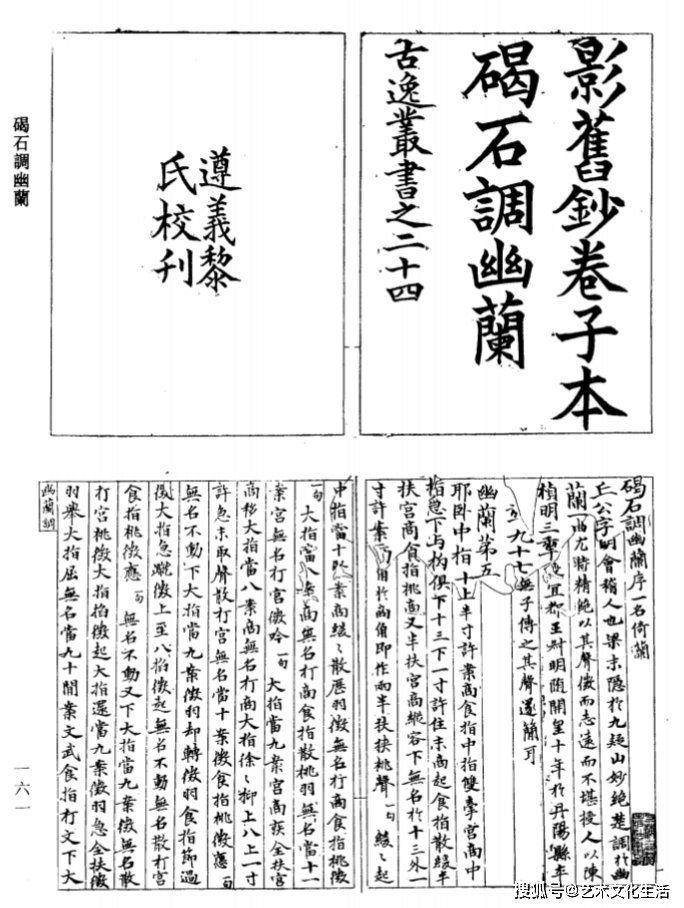 影舊鈔卷子本
碣石調幽蘭
古逸叢書之二十四
遵義黎
氏校刊
碣石調幽蘭
碣石調幽蘭序一名倚蘭
丘公字明會稽人也梁末隱於九疑山妙絕楚調於幽
蘭一曲尤特精絕以其聲微而志遠而不堪授人以陳
禎明三年授宜都王叔明隨開皇十年於丹陽縣卒
九十七無子傳之其聲遂簡耳
幽蘭第五
耶卧中指十上半寸許案商食指中指雙牽宮商中
指急下与构俱下十三下一寸許住末商起食指散緩半
扶宮商食指挑商又半扶宮商縱容下無名於十三外一
寸許案商角於商角即作兩半扶挾挑聲一句 緩〻起
中指當十案商緩〻散歷羽徵無名打商食指挑徵
一句 大指當八案商無名打商食指散挑羽無名當十一
案宮無名打宮徵吟一句 大指當九案宮商疾全扶宮
商移大指當八案商無名打商大指徐〻抑上八上一寸
許急末取聲散打宮無名當十案徵食指挑徵應一句
無名不動下大指當九案徵羽却轉徵羽食指節過
徵大指急蹴徵上至八掐徵起無名不動無名散打宮
食指挑徵應一句 無名不動又下大指當九案徵無名散
打宮挑徵大指掐徵起大指還當九案徵羽急全扶徵
羽舉大指屈無名當九十間案文武食指打文下大
幽蘭調
一六一
搜狐号@艺术文化生活